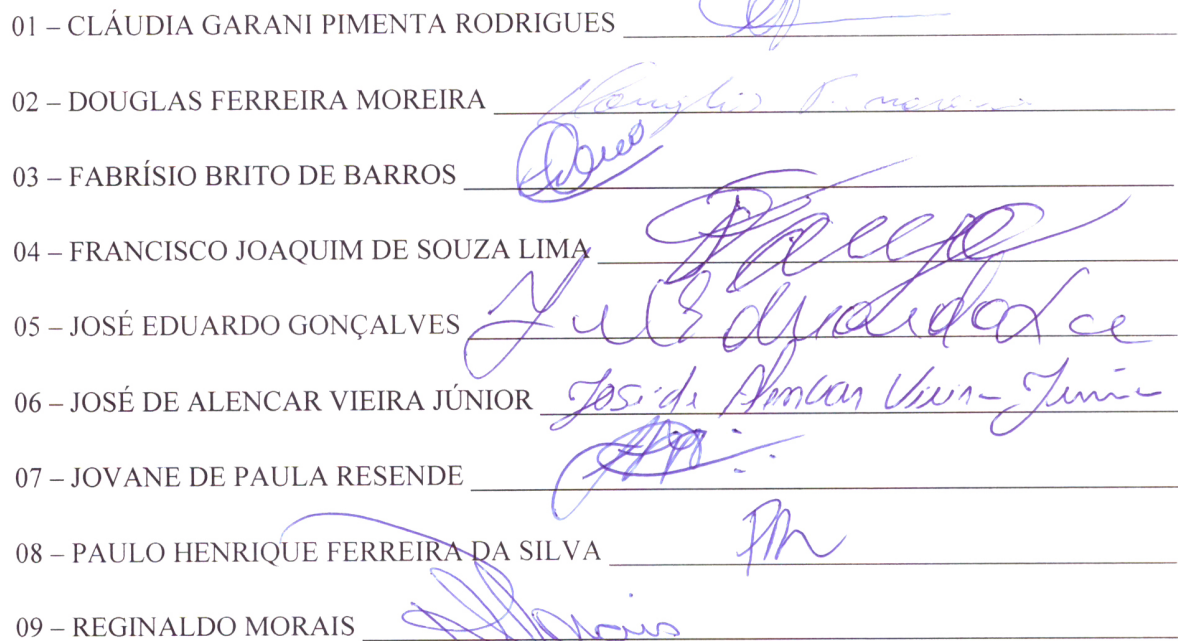 01 – CLÁUDIA GARANI PIMENTA RODRIGUES
02 – DOUGLAS FERREIRA MOREIRA
03 – FABRÍSIO BRITO DE BARROS
04 – FRANCISCO JOAQUIM DE SOUZA LIMA
05 – JOSÉ EDUARDO GONÇALVES
06 – JOSÉ DE ALENCAR VIEIRA JÚNIOR José de Alencar Vieira Junior
07 – JOVANE DE PAULA RESENDE
08 – PAULO HENRIQUE FERREIRA DA SILVA
09 – REGINALDO MORAIS